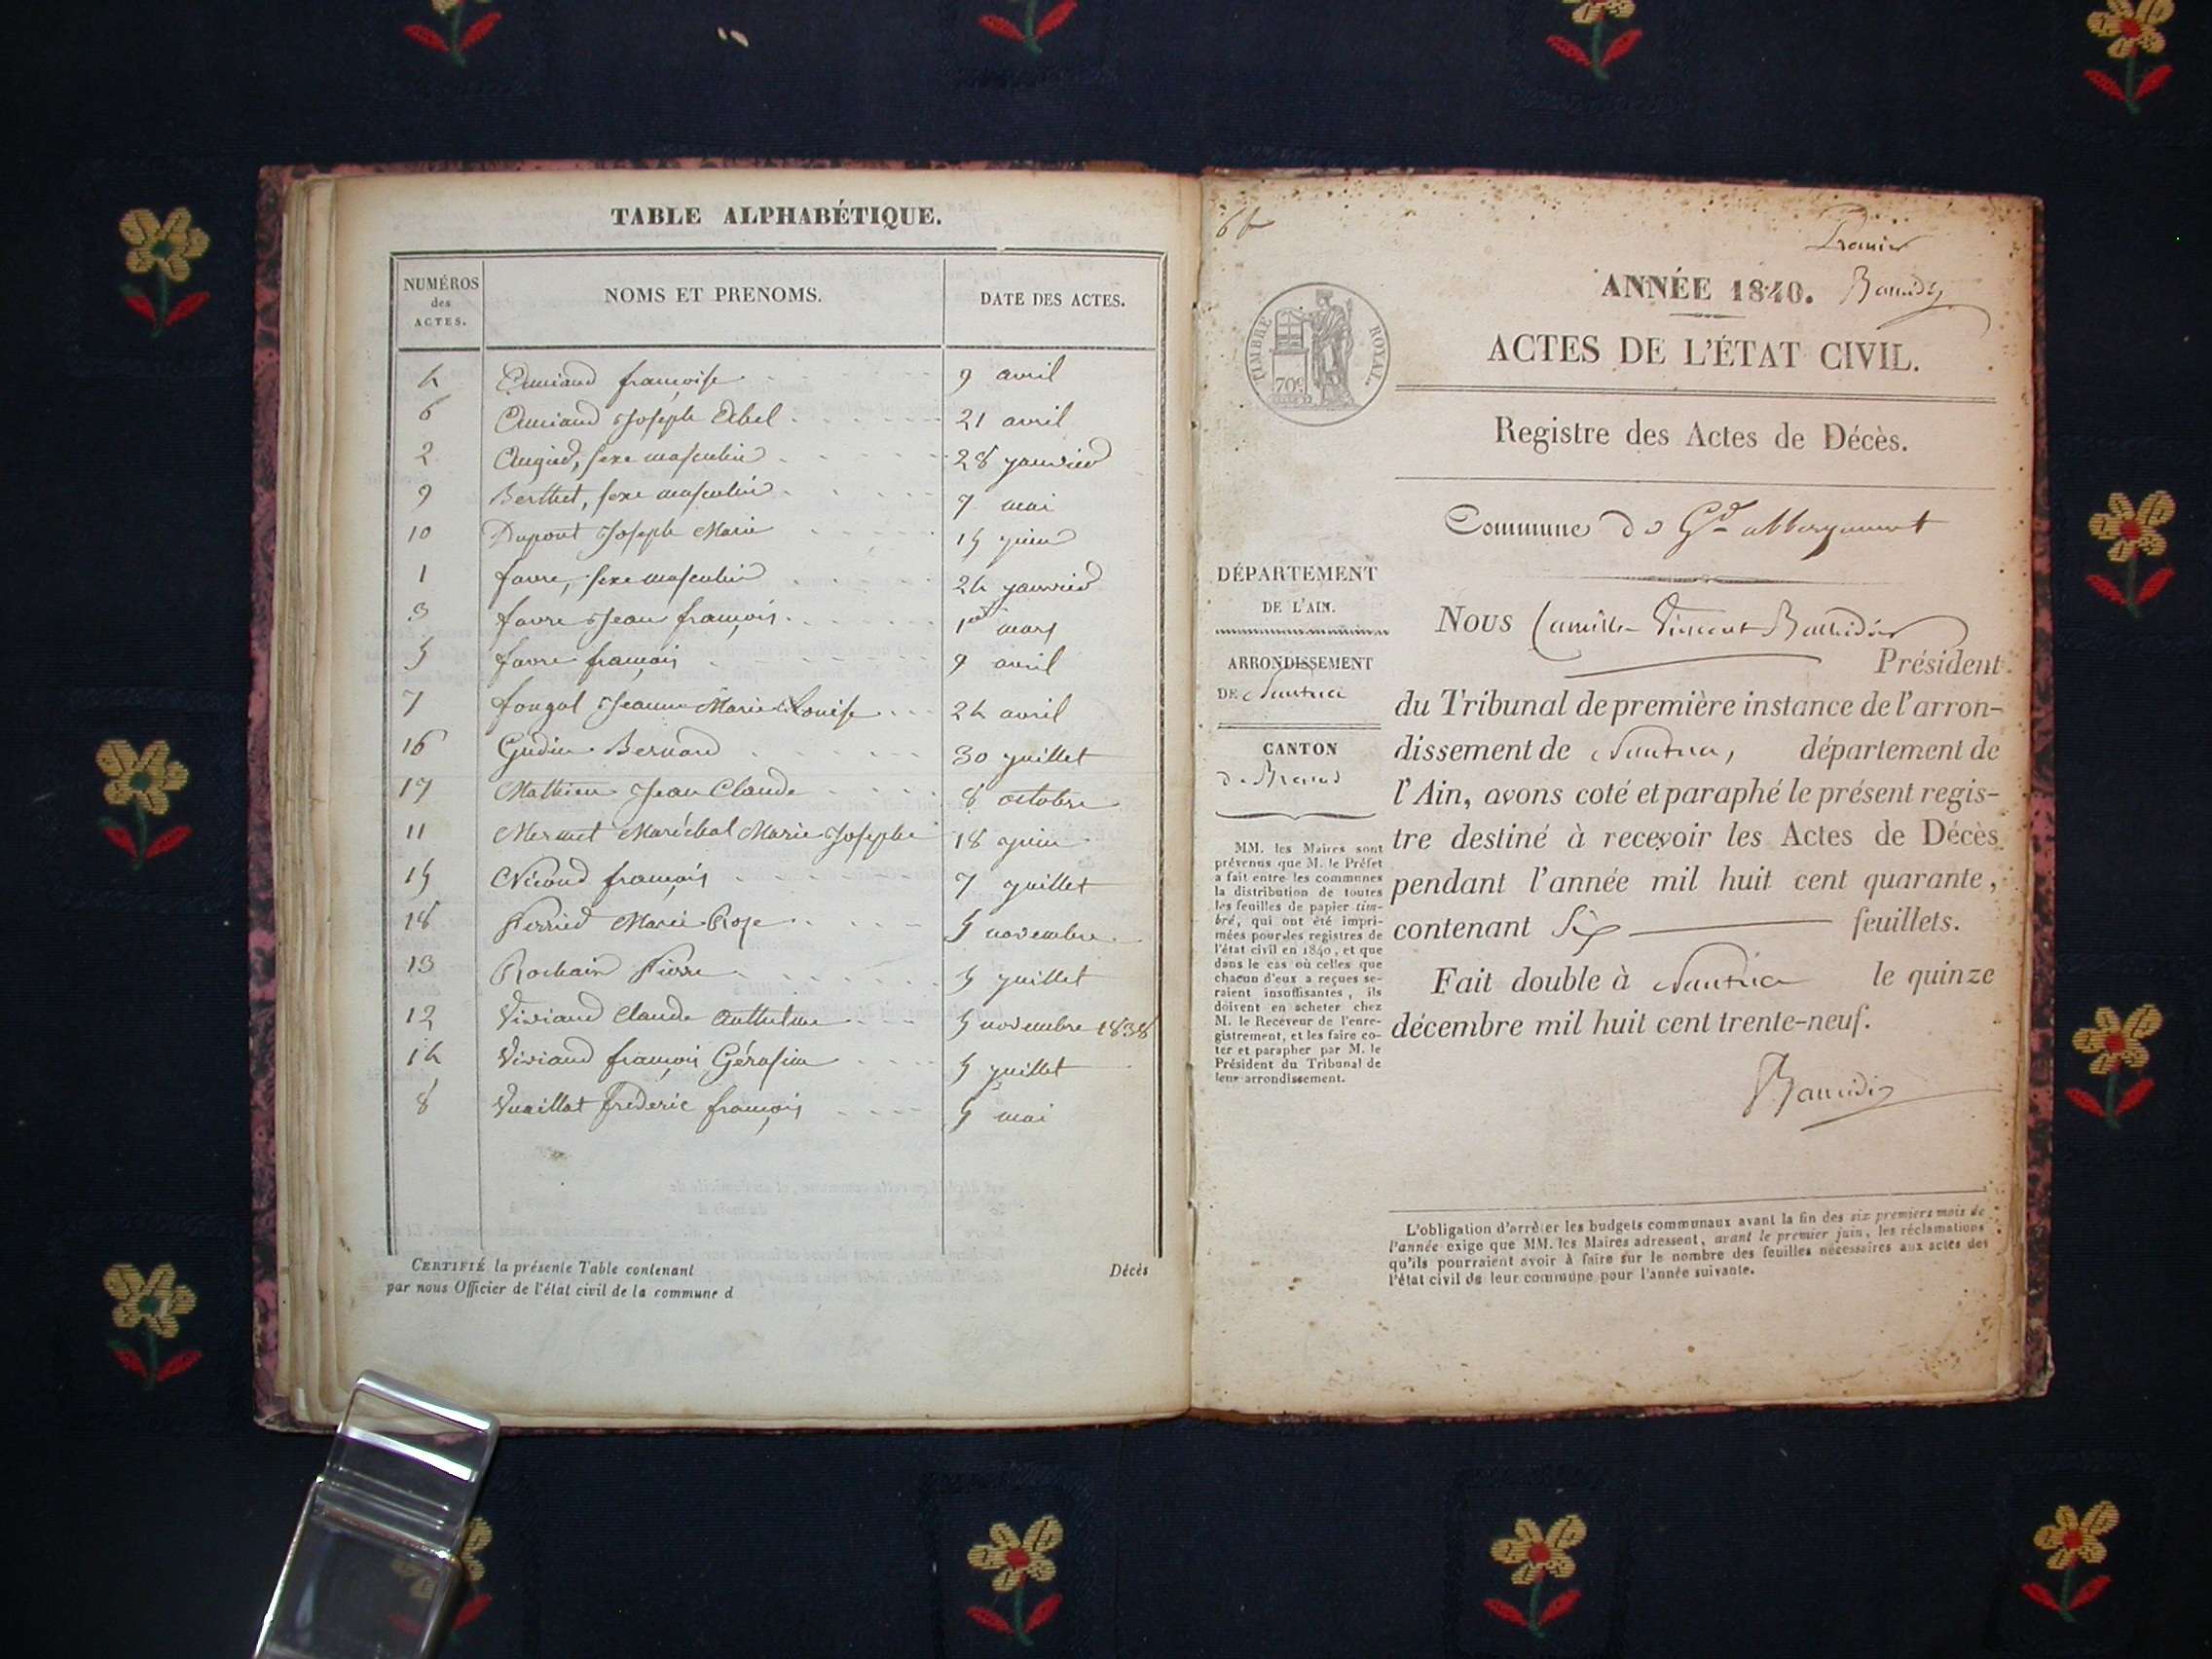 TABLE ALPHABÉTIQUE.
NUMÉROS
des
ACTES.
NOMS ET PRENOMS.
DATE DES ACTES.
4 françoise 9 avril
6 Joseph 21 avril
2 sexe masculin 28 janvier
9 Berthet, sexe masculin 7 mai
10 Dupont Joseph Marie 15 juin
1 favre, sexe masculin 24 janvier
3 favre Jean françois 1er mars
5 favre françois 9 avril
7 Jeanne Marie Louise 24 avril
16 Bernard 30 juillet
17 Mathieu Jean Claude 8 octobre
11 Mermet Maréchal Marie Josephe 18 juin
15 Nicoud françois 7 juillet
18 Perrier Marie Roze 5 novembre
13 Rochaix Pierre 5 juillet
12 Viviand Claude Anthelme 5 novembre 1838
14 Viviand françois Gérasime 5 juillet
8 Vuaillat frederic françois 5 mai
CERTIFIÉ la présente Table contenant Décès
par nous Officier de l'état civil de la commune d
Premier
ANNÉE 1840.
TIMBRE ROYAL.
70c
ACTES DE L'ÉTAT CIVIL.
Registre des Actes de Décès.
Commune de Gd abbergement
DÉPARTEMENT
DE L'AIN.
ARRONDISSEMENT
DE Nantua
CANTON
de Brenod
MM. les Maires sont
prévenus que M. le Préfet
a fait entre les communes
la distribution de toutes
les feuilles de papier tim-
bré, qui ont été impri-
mées pour les registres de
l'état civil en 1840, et que
dans le cas où celles que
chacun d'eux a reçues se-
raient insuffisantes, ils
doivent en acheter chez
M. le Receveur de l'enre-
gistrement, et les faire co-
ter et parapher par M. le
Président du Tribunal de
leur arrondissement.
Nous Camille Vincent
Président
du Tribunal de première instance de l'arron-
dissement de Nantua, département de
l'Ain, avons coté et paraphé le présent regis-
tre destiné à recevoir les Actes de Décès
pendant l'année mil huit cent quarante,
contenant Six feuillets.
Fait double à Nantua le quinze
décembre mil huit cent trente-neuf.
L'obligation d'arrêter les budgets communaux avant la fin des six premiers mois de
l'année exige que MM. les Maires adressent, avant le premier juin, les réclamations
qu'ils pourraient avoir à faire sur le nombre des feuilles nécessaires aux actes de
l'état civil de leur commune pour l'année suivante.